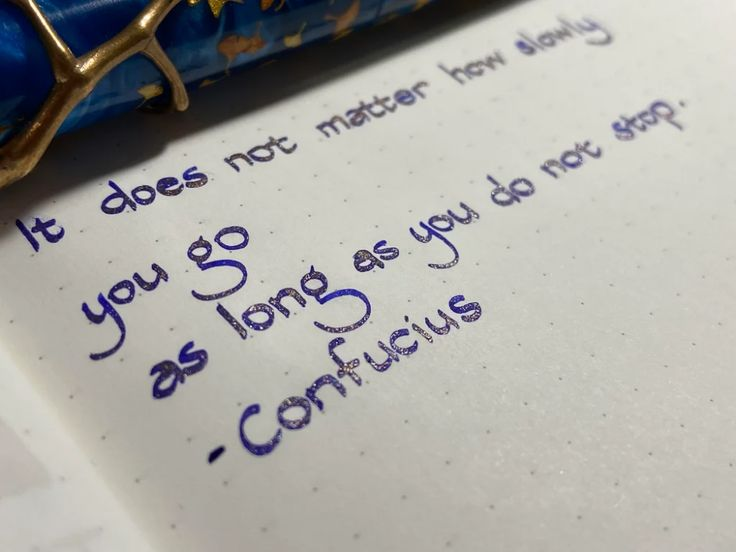 It does not matter how slowly
you go
as long as you do not stop.
- Confucius